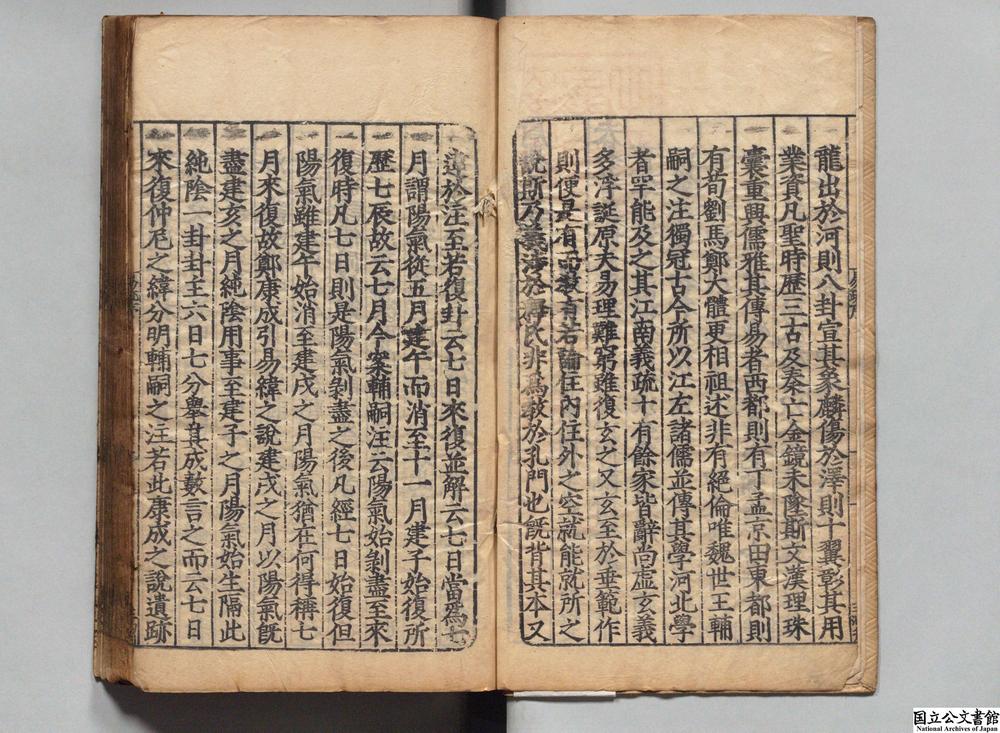 龍出於河則八卦宣其象麟傷於澤則十翼彰其用
業資凡聖時歷三古及秦亡金鏡未墜斯文漢理珠
囊重興儒雅其傳易者西都則有丁孟京田東都則
有荀劉馬鄭大體更相祖述非有絕倫唯魏世王輔
嗣之注獨冠古今所以江左諸儒並傳其學河北學
者罕能及之其江南義疏十有餘家皆辭尚虛玄義
多浮誕原夫易理難窮雖復玄之又玄至於垂範作
則便是有而教有若論住內住外之空就能就所之
說斯乃義涉於釋氏非為教於孔門也旣背其本又
違於注至若復卦云七日來復並解云七日當爲七
月謂陽氣從五月建午而消至十一月建子始復所
歷七辰故云七月今案輔嗣注云陽氣始剝盡至來
復時凡七日則是陽氣剝盡之後凡經七日始復但
陽氣雖建午始消至建戌之月陽氣猶在何得稱七
月來復故鄭康成引易緯之說建戌之月以陽氣旣
盡建亥之月純陰用事至建子之月陽氣始生隔此
純陰一卦卦主六日七分舉其成數言之而云七日
來復仲尼之緯分明輔嗣之注若此康成之說遺跡
国立公文書館
National Archives of Japan